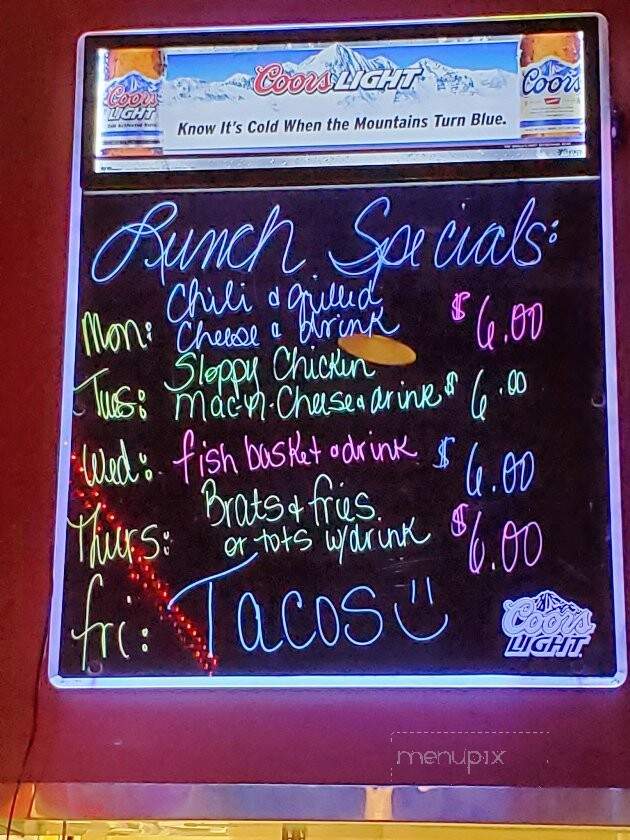 Coors LIGHT
Coors
LIGHT
Coors
Know It's Cold When the Mountains Turn Blue.
Lunch Specials:
Chili & grilled
Mon: Cheese & drink $6.00
Sloppy Chicken
Tues: mac-n-Cheese & drink $6.00
Wed: fish basket & drink $6.00
Brats & fries
Thurs: or tots w/drink $6.00
fri: Tacos
Coors
LIGHT
menupix